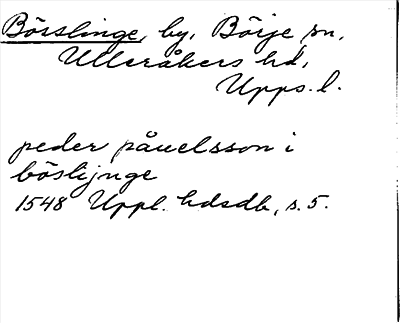 Börslinge, by, Börje sn,
Ulleråkers hd,
Upps. l.
peder påuelsson i
böslijnge
1548 Uppl. hdsdb, s. 5.